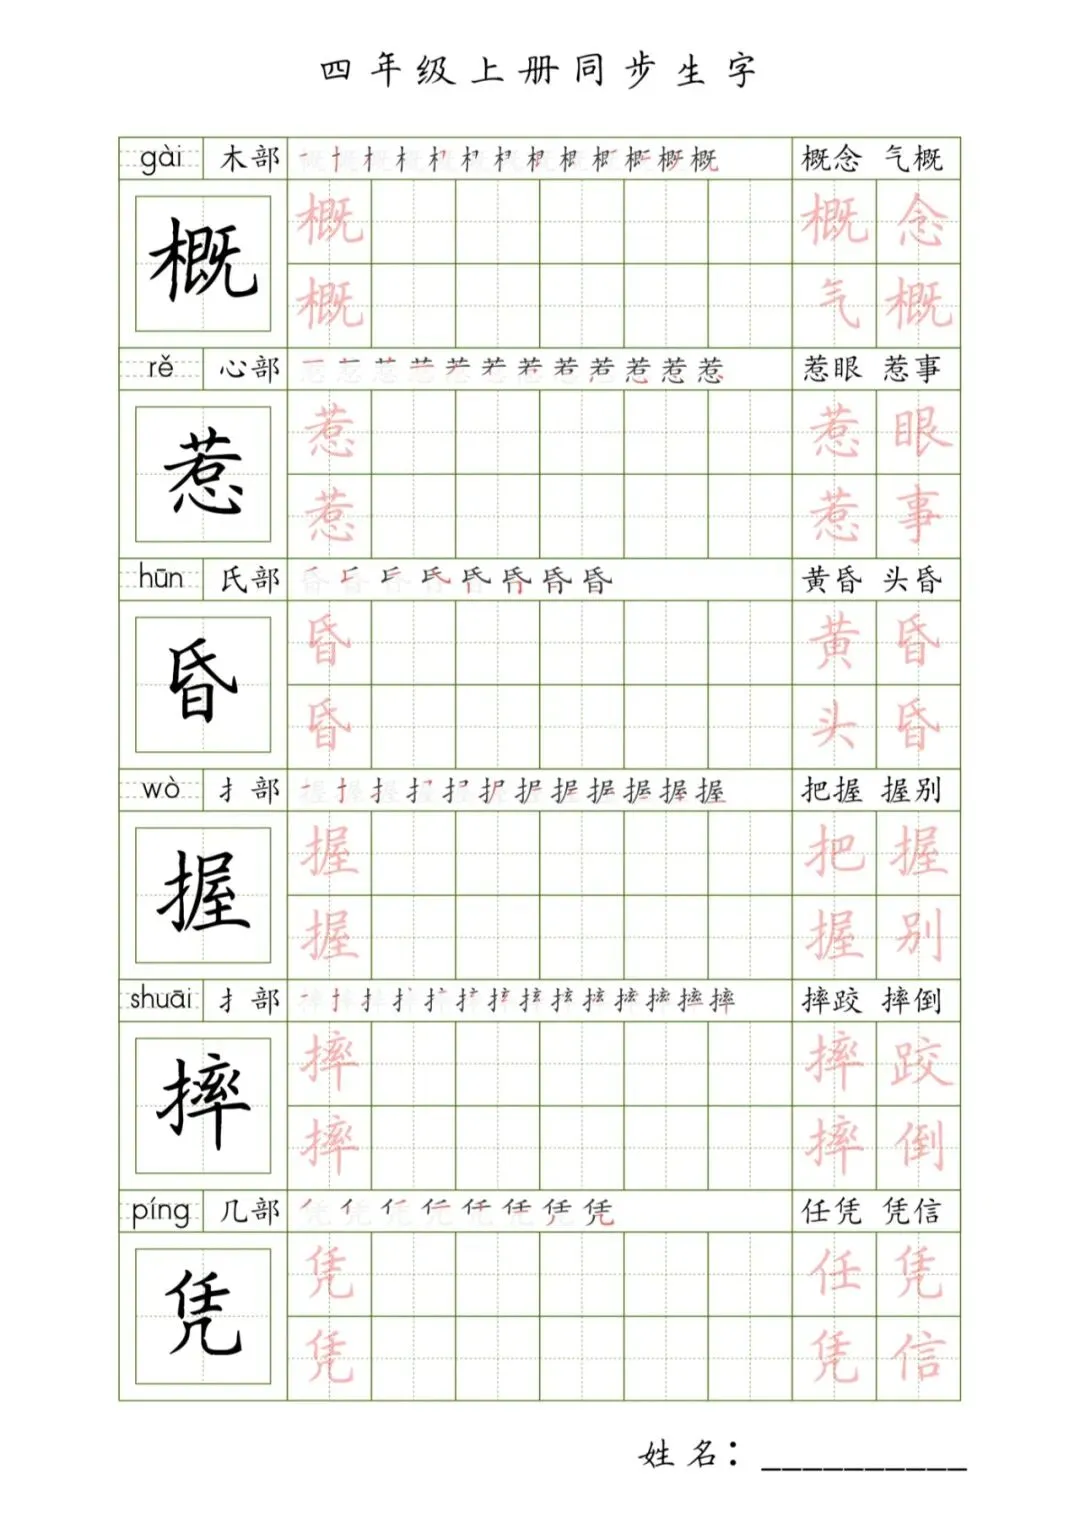 四年级上册同步生字
gài 木部 概念 气概
概 概 概 念
概 气 概
rě 心部 惹眼 惹事
惹 惹 惹 眼
惹 惹 事
hūn 氏部 黄昏 头昏
昏 昏 黄 昏
昏 头 昏
wò 扌部 把握 握别
握 握 把 握
握 握 别
shuāi 扌部 摔跤 摔倒
摔 摔 摔 跤
摔 摔 倒
píng 几部 任凭 凭信
凭 凭 任 凭
凭 凭 信
姓名：__________